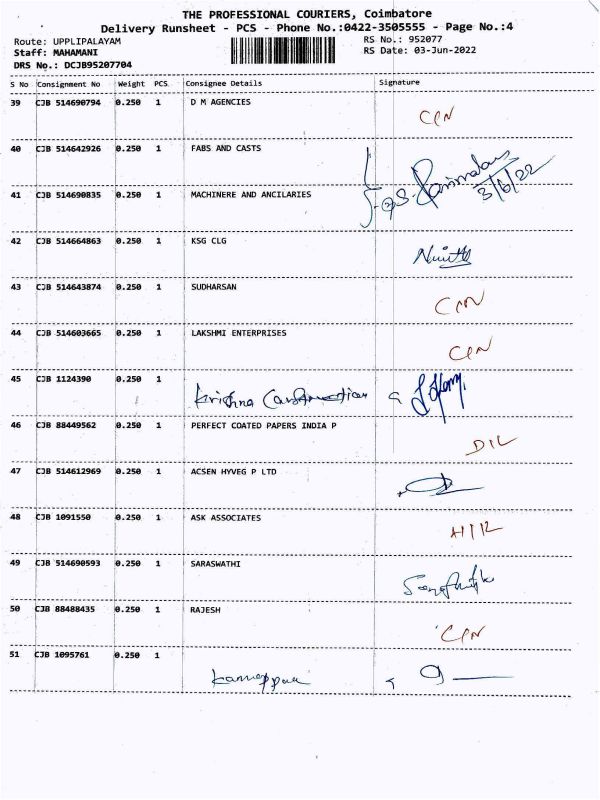 THE PROFESSIONAL COURIERS, Coimbatore
Delivery Runsheet - PCS - Phone No.:0422-3505555 - Page No.:4
Route: UPPLIPALAYAM RS No.: 952077
Staff: MAHAMANI RS Date: 03-Jun-2022
DRS No.: DCJB95207704
S No Consignment No Weight PCS Consignee Details Signature
39 CJB 514690794 0.250 1 D M AGENCIES
40 CJB 514642926 0.250 1 FABS AND CASTS
41 CJB 514690835 0.250 1 MACHINERE AND ANCILARIES 3/6/22
42 CJB 514664863 0.250 1 KSG CLG
43 CJB 514643874 0.250 1 SUDHARSAN
44 CJB 514603665 0.250 1 LAKSHMI ENTERPRISES
45 CJB 1124390 0.250 1 Krishna Construction
46 CJB 88449562 0.250 1 PERFECT COATED PAPERS INDIA P D/L
47 CJB 514612969 0.250 1 ACSEN HYVEG P LTD
48 CJB 1091550 0.250 1 ASK ASSOCIATES
49 CJB 514690593 0.250 1 SARASWATHI
50 CJB 88488435 0.250 1 RAJESH
51 CJB 1095761 0.250 1